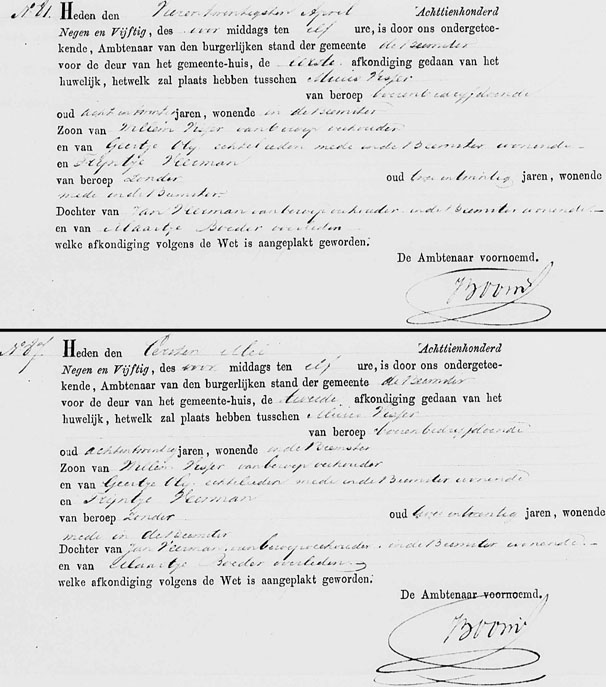 N° 21. Heden den Vierentwintigsten April Achttienhonderd
Negen en Vijftig, des voor middags ten elf ure, is door ons ondergetee-
kende, Ambtenaar van den burgerlijken stand der gemeente de Beemster
voor de deur van het gemeente-huis, de eerste afkondiging gedaan van het
huwelijk, hetwelk zal plaats hebben tusschen Visser
van beroep boerenbedrijfdoende
oud achtentwintig jaren, wonende in de Beemster
Zoon van Willem Visser van beroep veehouder
en van Geertje Oly echtelieden mede in de Beemster wonende
en Trijntje Veerman
van beroep Zonder oud twee en twintig jaren, wonende
mede in de Beemster
Dochter van Jan Veerman van beroep veehouder in de Beemster wonende
en van Maartje Boeder overleden
welke afkondiging volgens de Wet is aangeplakt geworden.
De Ambtenaar voornoemd.
Heden den Eersten Mei Achttienhonderd
Negen en Vijftig, des voor middags ten elf ure, is door ons ondergetee-
kende, Ambtenaar van den burgerlijken stand der gemeente de Beemster
voor de deur van het gemeente-huis, de tweede afkondiging gedaan van het
huwelijk, hetwelk zal plaats hebben tusschen Visser
van beroep boerenbedrijfdoende
oud achtentwintig jaren, wonende in de Beemster
Zoon van Willem Visser van beroep veehouder
en van Geertje Oly echtelieden mede in de Beemster wonende
en Trijntje Veerman
van beroep Zonder oud twee en twintig jaren, wonende
mede in de Beemster
Dochter van Jan Veerman van beroep veehouder in de Beemster wonende
en van Maartje Boeder overleden
welke afkondiging volgens de Wet is aangeplakt geworden.
De Ambtenaar voornoemd.